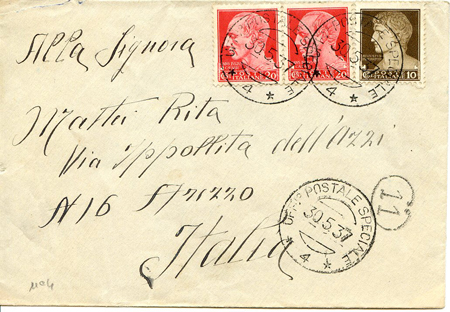 20 20 10
30.5.37
4
30.5.37
4
Alla Signora
Mattei Rita
Via Ippollita dell'Azzi
N 16 Arezzo
Italia
UFF° POSTALE SPECIALE
30.5.37
4
11